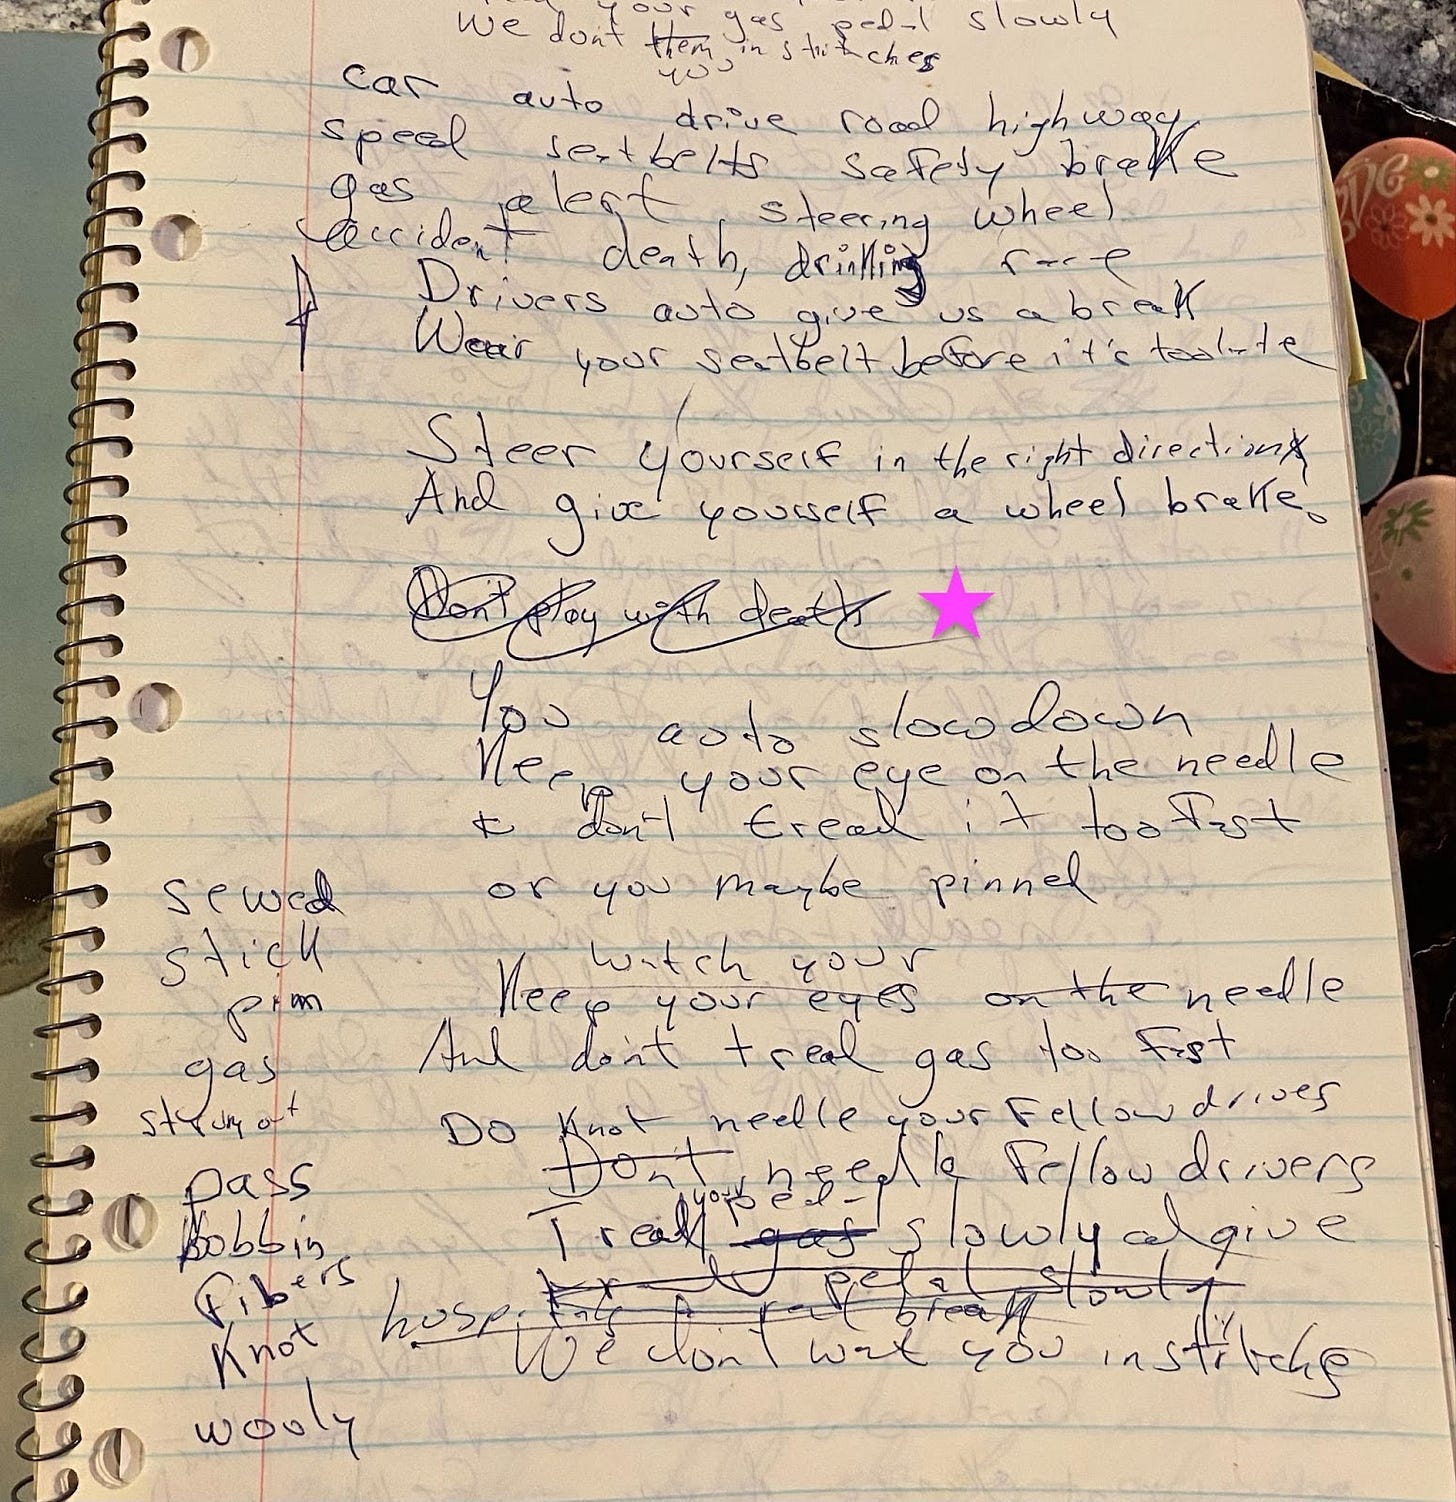 your gas pedal slowly
We dont them in stitches
you
car auto drive road highway
speed seatbelts safety brake
gas alert steering wheel
accident death, drinking race
Drivers auto give us a break
Wear your seatbelt before it's too late
Steer yourself in the right direction
And give yourself a wheel brake.
Don't play with death
You auto slow down
Keep your eye on the needle
& don't tread it too fast
sewed or you maybe pinned
stick watch your
pim Keep your eyes on the needle
gas And don't tread gas too fast
strung out Do Knot needle your Fellow drives
pass Dont needle Fellow drivers
your pedal
Bobbin Tread gas slowly and give
Fibers pedal slowly
hospitals a break
Knot We don't want you in stitches
wooly